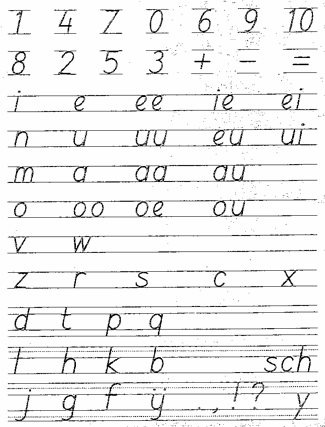 1 4 7 0 6 9 10
8 2 5 3 + − =
i e ee ie ei
n u uu eu ui
m a aa au
o oo oe ou
v w
z r s c x
d t p q
l h k b sch
j g f ij . , ! ? y